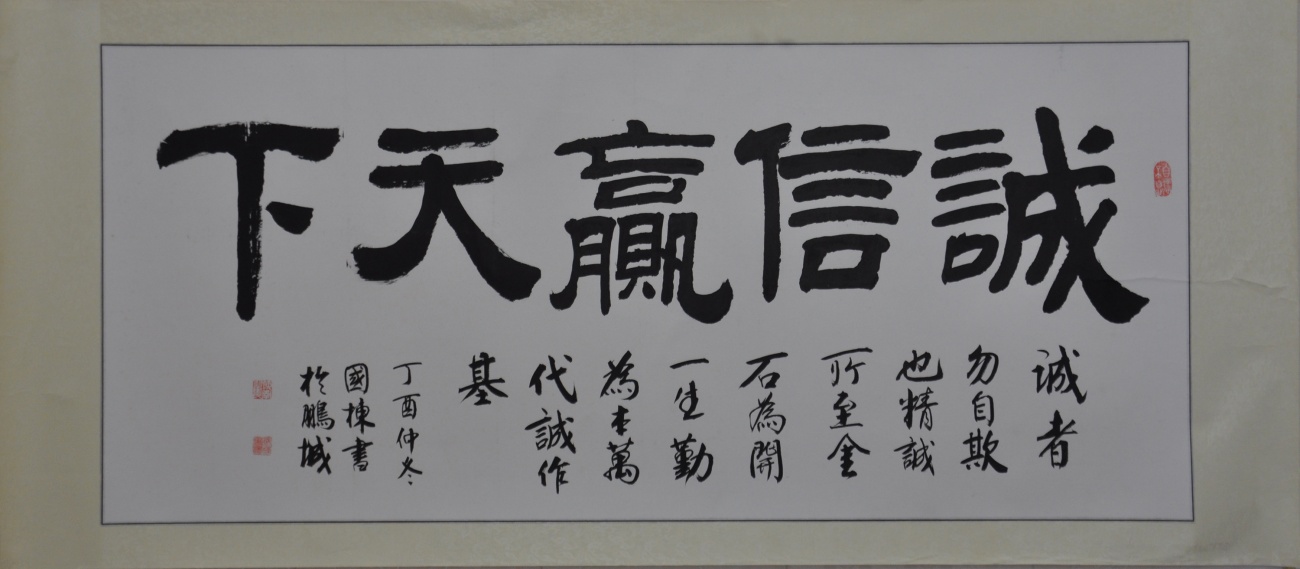 誠信贏天下
诚者
勿自欺
也精誠
所至金
石為開
一生勤
為本萬
代誠作
基
丁酉仲冬
國棟書
於鵬城